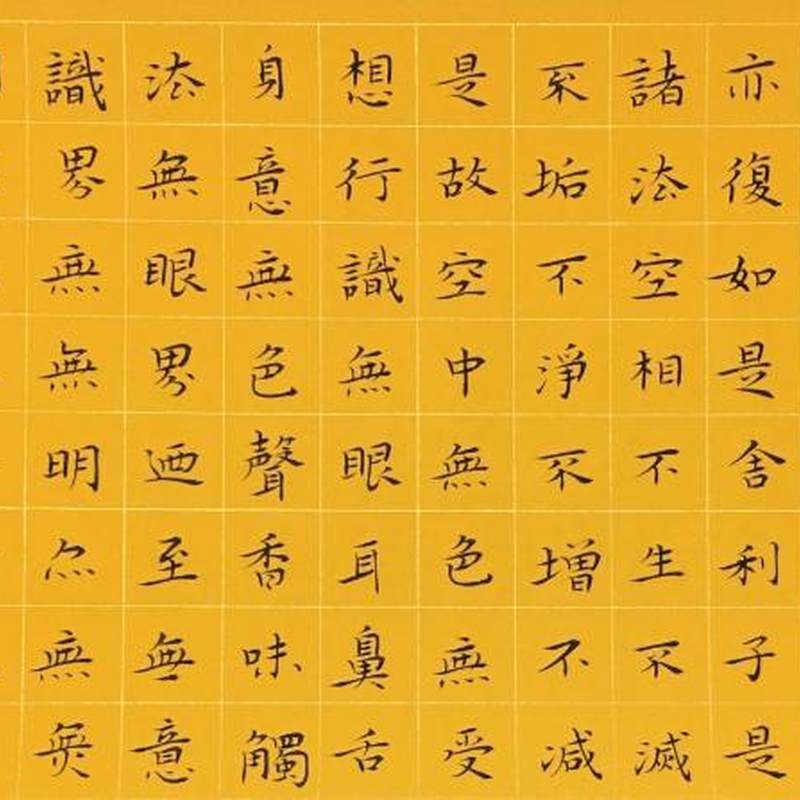 亦復如是舍利子是
諸法空相不生不滅
不垢不淨不增不減
是故空中無色無受
想行識無眼耳鼻舌
身意無色聲香味觸
法無眼界迺至無意
識界無無明亦無無